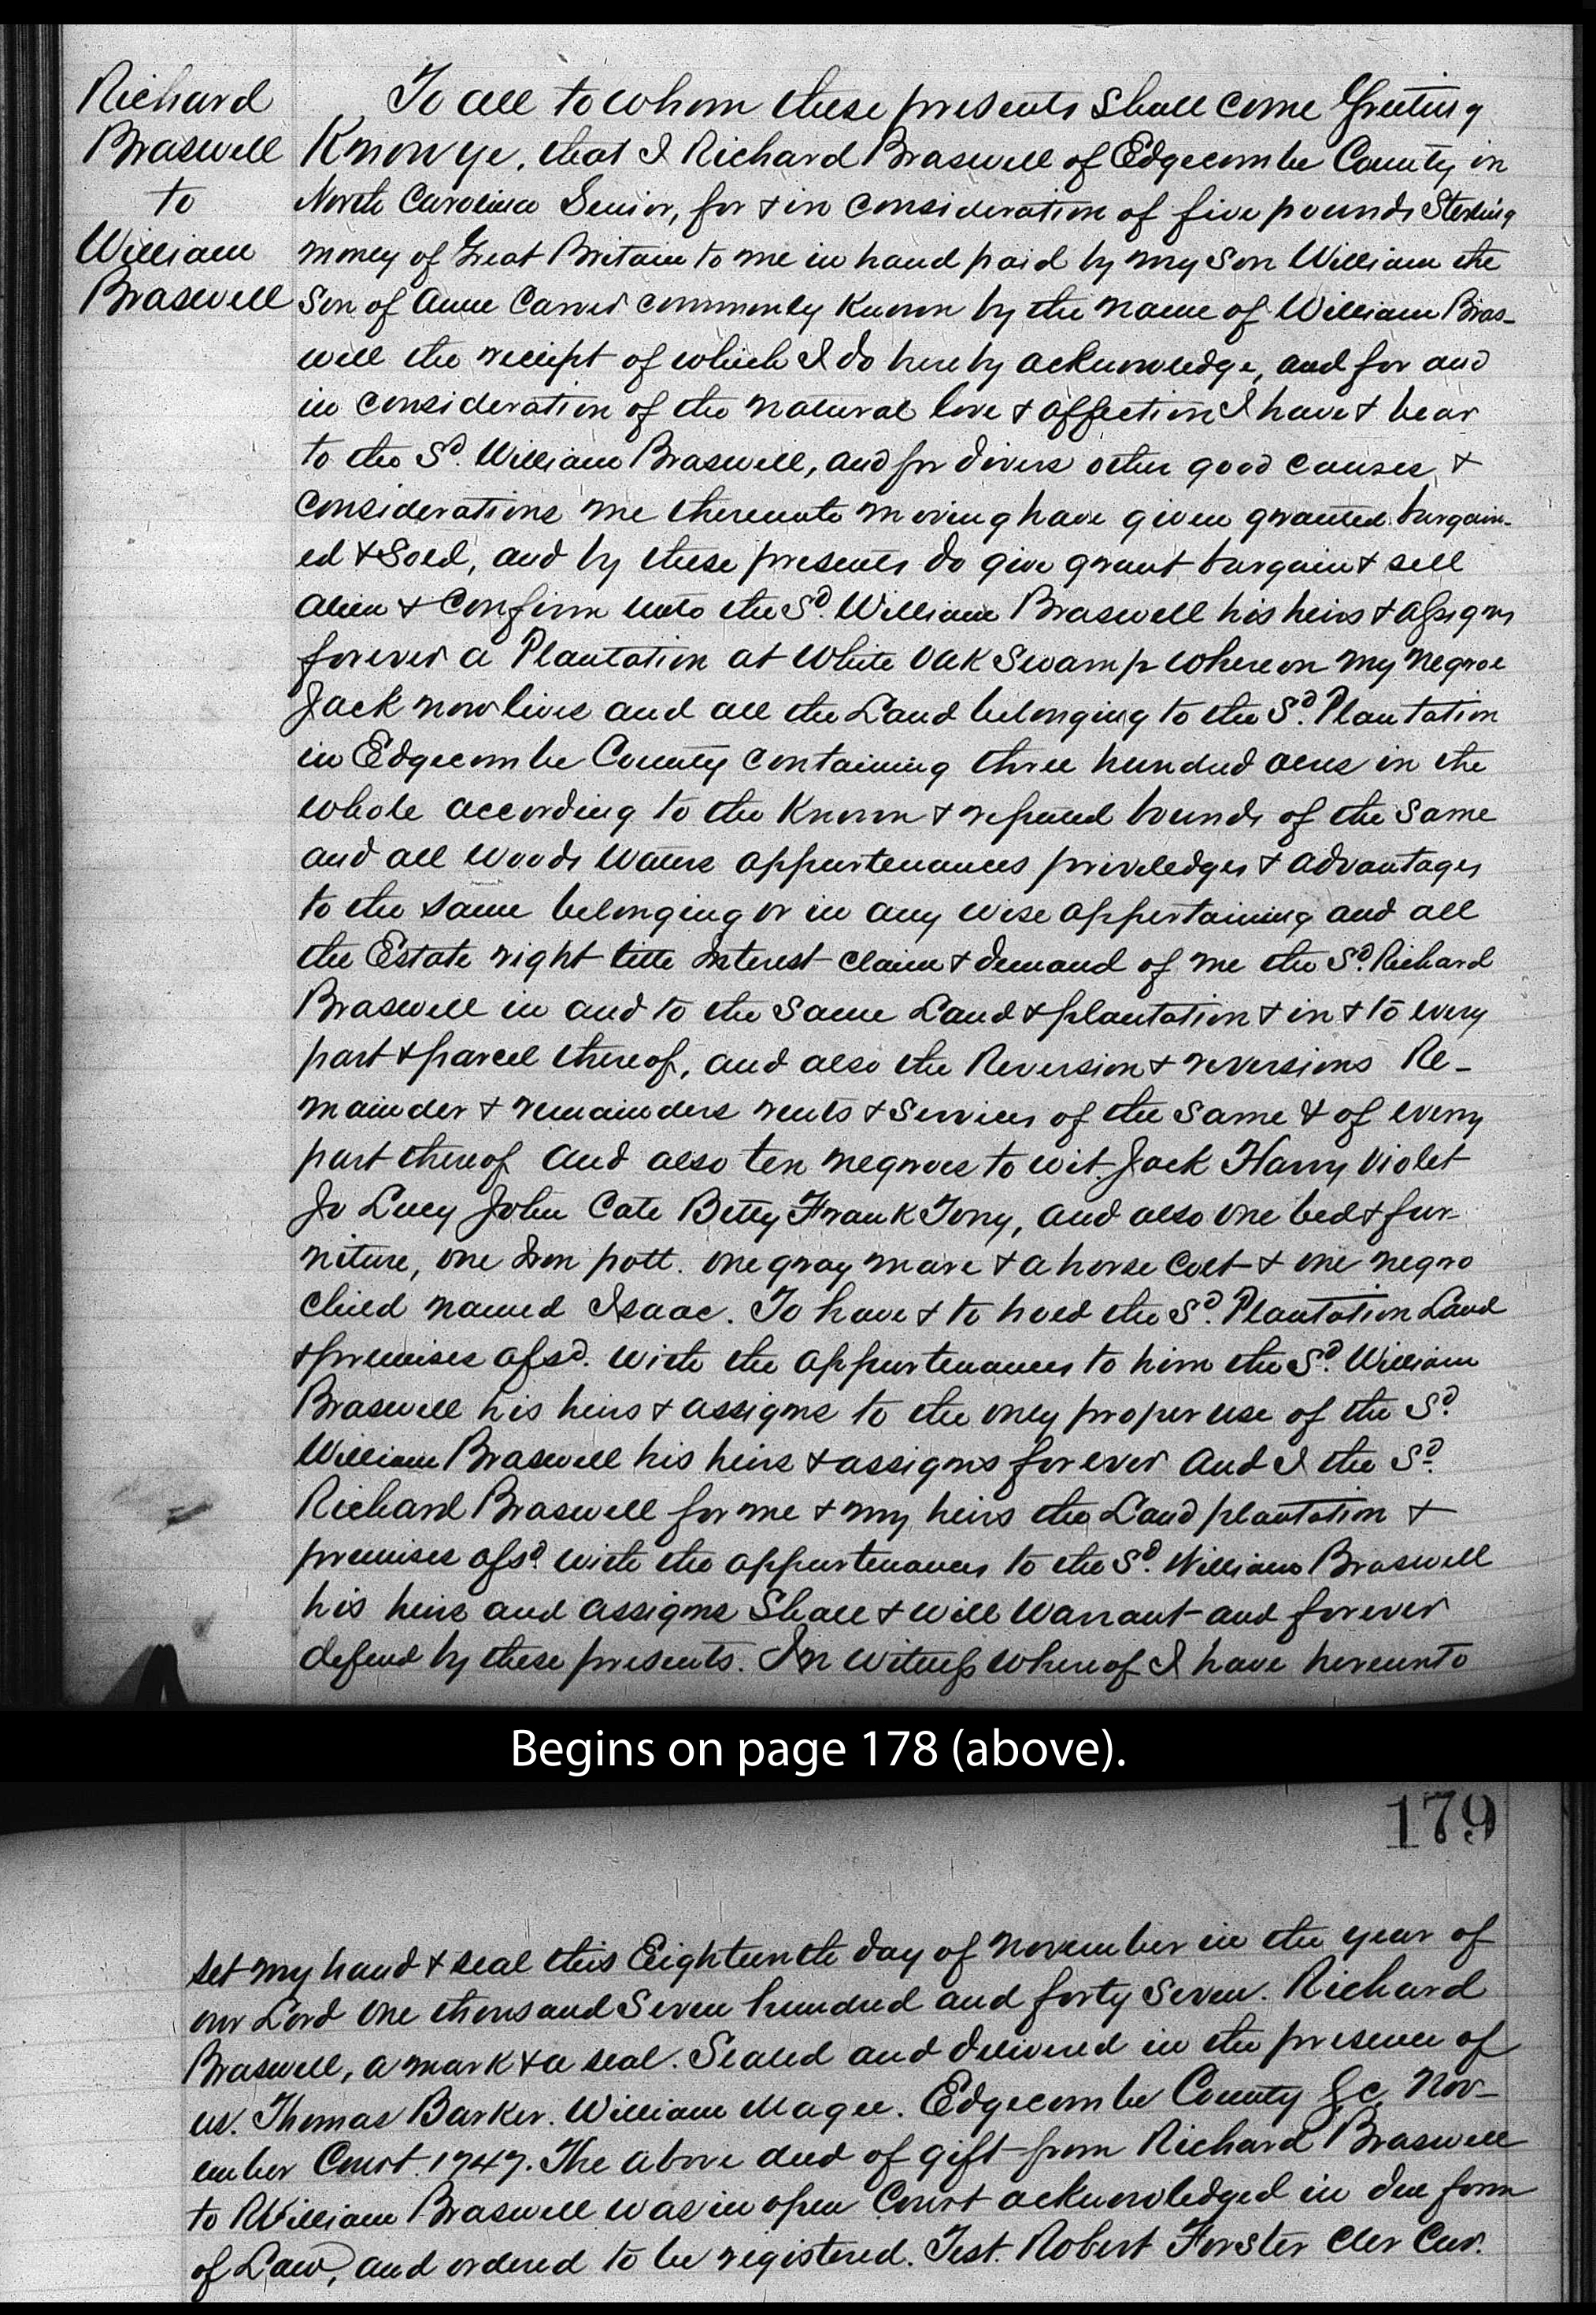 Richard
Braswell
to
William
Braswell
To all to whom these presents Shall come Greeting
Know ye, that I Richard Braswell of Edgecombe County in
North Carolina Senior, for & in consideration of five pounds Sterling
money of Great Britain to me in hand paid by my Son William the
Son of Anne Carver commonly Known by the name of William Bras-
well the receipt of which I do hereby acknowledge, and for and
in consideration of the natural love & affection I have & bear
to the Sd. William Braswell, and for divers other good causes, &
considerations me thereunto moving have given granted bargain-
ed & Sold, and by these presents do give grant bargain & sell
alien & Confirm unto the Sd. William Braswell his heirs & assigns
forever a Plantation at White Oak Swamp whereon my negroe
Jack now lives and all the Land belonging to the Sd. Plantation
in Edgecombe County containing three hundred acres in the
whole according to the Known & reputed bounds of the Same
and all Woods Waters appurtenances priviledges & advantages
to the same belonging or in any wise appertaining and all
the Estate right title Interest claim & demand of me the Sd. Richard
Braswell in and to the Same Land & plantation & in & to every
part & parcel thereof, and also the Reversion & reversions Re-
mainder & remainders rents & Services of the Same & of every
part thereof and also ten negroes to wit. Jack Harry Violet
Jo Lucy John Cate Betty Frank Tony, and also one bed & fur-
niture, one Iron pott. one gray mare & a horse Colt & one negro
child named Isaac. To have & to hold the Sd. Plantation Land
& premises afsd. with the appurtenances to him the Sd. William
Braswell his heirs & assigns to the only proper use of the Sd.
William Braswell his heirs & assigns forever and I the Sd.
Richard Braswell for me & my heirs the Land plantation &
premises afsd. with the appurtenances to the Sd. William Braswell
his heirs and assigns Shall & Will Warrant and forever
defend by these presents. In Witness whereof I have hereunto
Begins on page 178 (above).
179
set my hand & seal this Eighteenth day of November in the year of
our Lord one thousand Seven hundred and forty Seven. Richard
Braswell, a mark & a seal. Sealed and delivered in the presence of
us. Thomas Barker. William Magee. Edgecombe County Sc. Nov-
ember Court. 1747. The above deed of gift from Richard Braswell
to William Braswell was in open Court acknowledged in due form
of Law, and ordered to be registered. Test. Robert Forster Cler Cur.